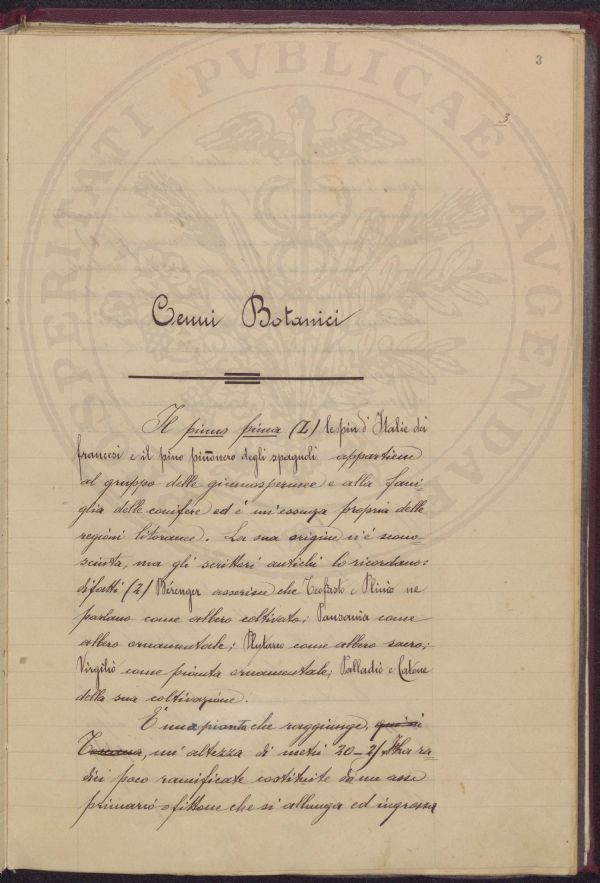 3
3
Cenni Botanici
Il pinus pinea (L) le pin d'Italie dei
francesi e il pino piñonero degli spagnoli appartiene
al gruppo delle gimnosperme e alla fami-
glia delle conifere ed è un'essenza propria delle
regioni litoranee. La sua origine ci è scono-
sciuta, ma gli scrittori antichi lo ricordano:
difatti (2) Bérenger asserisce che Teofrasto e Plinio ne
parlano come albero coltivato; Pausania come
albero ornamentale; Plutarco come albero sacro;
Virgilio come pianta ornamentale; Palladio e Catone
della sua coltivazione.
È una pianta che raggiunge, qui in
Toscana, un'altezza di metri 20-25. Ha ra
dici poco ramificate costituite da un asse
primario o fittone che si allunga ed ingrossa
PROSPERITATI PVBLICAE AVGENDAE